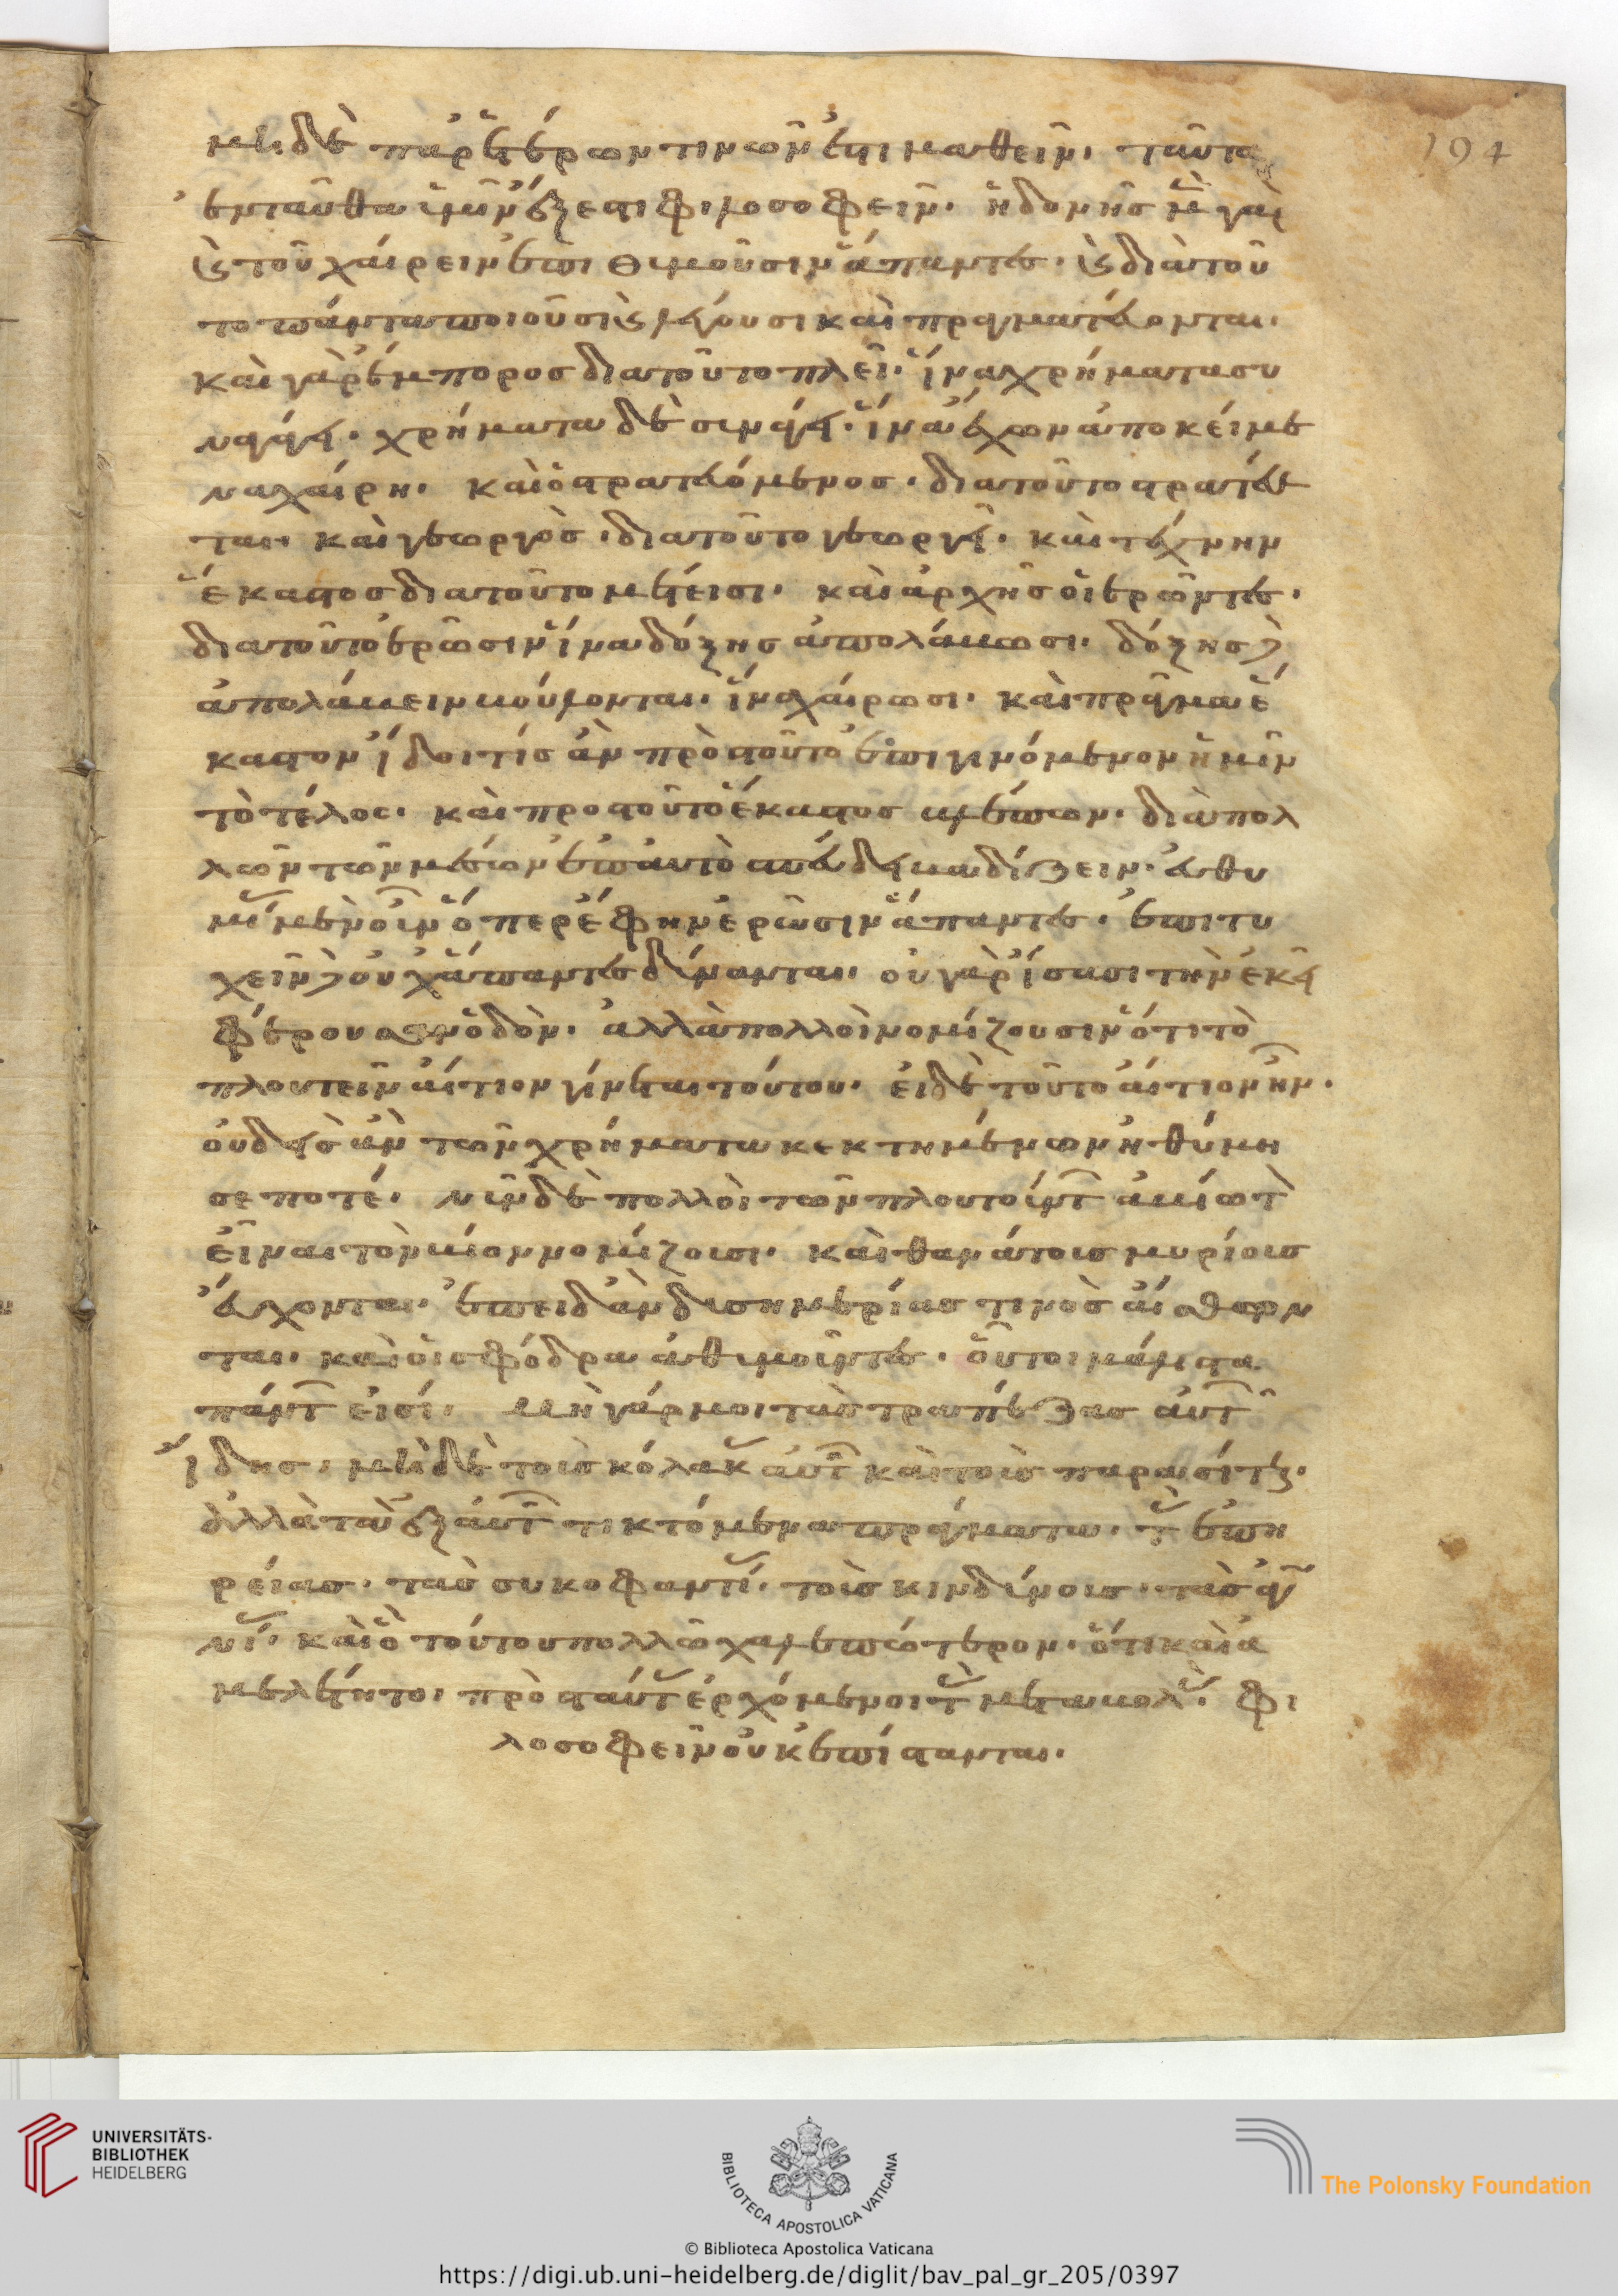 194
μηδὲ παρ ἑτέρων τινῶν ἐστι μαθεῖν. ταῦτα
ἐνταῦθα ὑμῖν ἔξεστι φιλοσοφεῖν. ἡδονῆς μὲν γὰρ
καὶ τοῦ χαίρειν ἐπιθυμοῦσιν ἅπαντες. καὶ διὰ τοῦ
το πάντα ποιοῦσι καὶ λέγουσι καὶ πραγματεύονται.
καὶ γὰρ ἔμπορος διατοῦτο πλεῖ. ἵνα χρήματα συ
ναγάγη. χρήματα δὲ συνάγει. ἵνα ἔχων ἀποκείμε
να χαίρη. καὶ ὁ στρατευόμενος. διατοῦτο στρατεύε
ται. καὶ γεωργὸς. διατοῦτο γεωργεῖ. καὶ τέχνην
ἕκαστος διατοῦτο μέτεισι. καὶ ἀρχῆς οἱ ἐρῶντες.
διατοῦτο ἐρῶσιν ἵνα δόξης ἀπολαύωσι. δόξης δὲ
ἀπολαύειν βούλονται. ἵνα χαίρωσι. καὶ πρᾶγμα ἕ
καστον ἴδοι τίς ἂν πρὸς τοῦτο ἐπιγινόμενον ἡμῖν
τὸ τέλος. καὶ προς τοῦτο ἕκαστος βλέπων. διὰ πολ
λῶν τῶν μέσων ἐπ αυτὸ σπεύδει βαδίζειν. εὐθυ
μεῖν μὲν οὖν ὅπερ ἔφην ἐρῶσιν ἅπαντες. ἐπιτυ
χεῖν δὲ οὐχ ἅπαντες δύνανται. οὐ γὰρ ἴσασι τὴν ἐκεῖ
φέρουσαν ὁδὸν. ἀλλὰ πολλοὶ νομίζουσιν ὅτι τὸ
πλουτεῖν αἴτιον γίνεται τούτου. εἰ δὲ τοῦτο αἴτιον ἦν.
οὐδεὶς ἂν τῶν χρήματα κεκτημένων ἠθύμη
σε ποτέ. νῦν δὲ πολλοὶ τῶν πλουτούντ ἀβίωτ
εἶναι τὸν βίον νομίζουσι. καὶ θανάτους μυρίους
εὔχονται. ἐπειδὰν δυσημερίας τινὸς αἴσθων
ται. καὶ οἱ σφόδρα ἀθυμοῦντες. οὗτοι μάλιστα
πάντ εἰσί. Μὴ γάρ μοι τὰς τραπέζας αὐτ
ἴδης. μηδὲ τοὺς κόλακ αὐτ καὶ τοὺς παρασίτ.
ἀλλὰ τὰ ἐξ αὐτ τικτόμενα πράγματα. τ ἐπη
ρείας. τὰς συκοφαντί. τοὺς κινδύνους. τὰς ἀγω
νί. καὶ ὃ τούτου πολλῶ χαλεπώτερον. ὅτι καὶ ἀ
μελέτητοι πρὸς ταύτ ἐρχόμενοι τ μεταβολ. φι
λοσοφεῖν οὐκ ἐπίστανται.
UNIVERSITÄTS-
BIBLIOTHEK
HEIDELBERG
BIBLIOTECA APOSTOLICA VATICANA
The Polonsky Foundation
© Biblioteca Apostolica Vaticana
https://digi.ub.uni-heidelberg.de/diglit/bav_pal_gr_205/0397